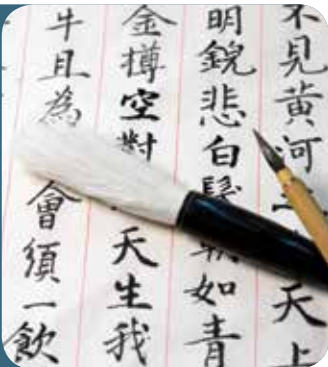 不見黃河天上
明鏡悲白髮朝如青
金樽空對天生我
牛且為會須一飲